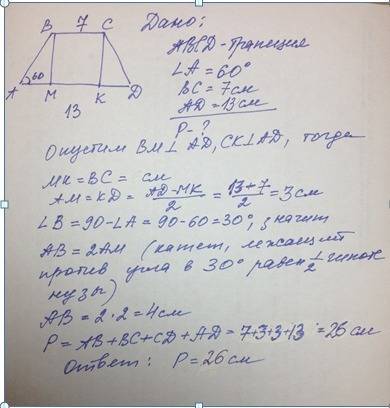 B 7 C
60
A M K D
13
Дано:
ABCD-трапеция
∠A=60°
BC=7см
AD=13см
P-?
Опустим BM⊥AD, CK⊥AD, тогда
MK=BC= см
AM=KD= AD-MK/2 = 13+7/2 =3см
∠B=90-∠A=90-60=30°, значит
AB=2AM (катет, лежащий
против угла в 30° равен 1/2 гипоте
нузы)
AB=2·2=4см
P=AB+BC+CD+AD=7+3+3+13=26см
Ответ: P=26см